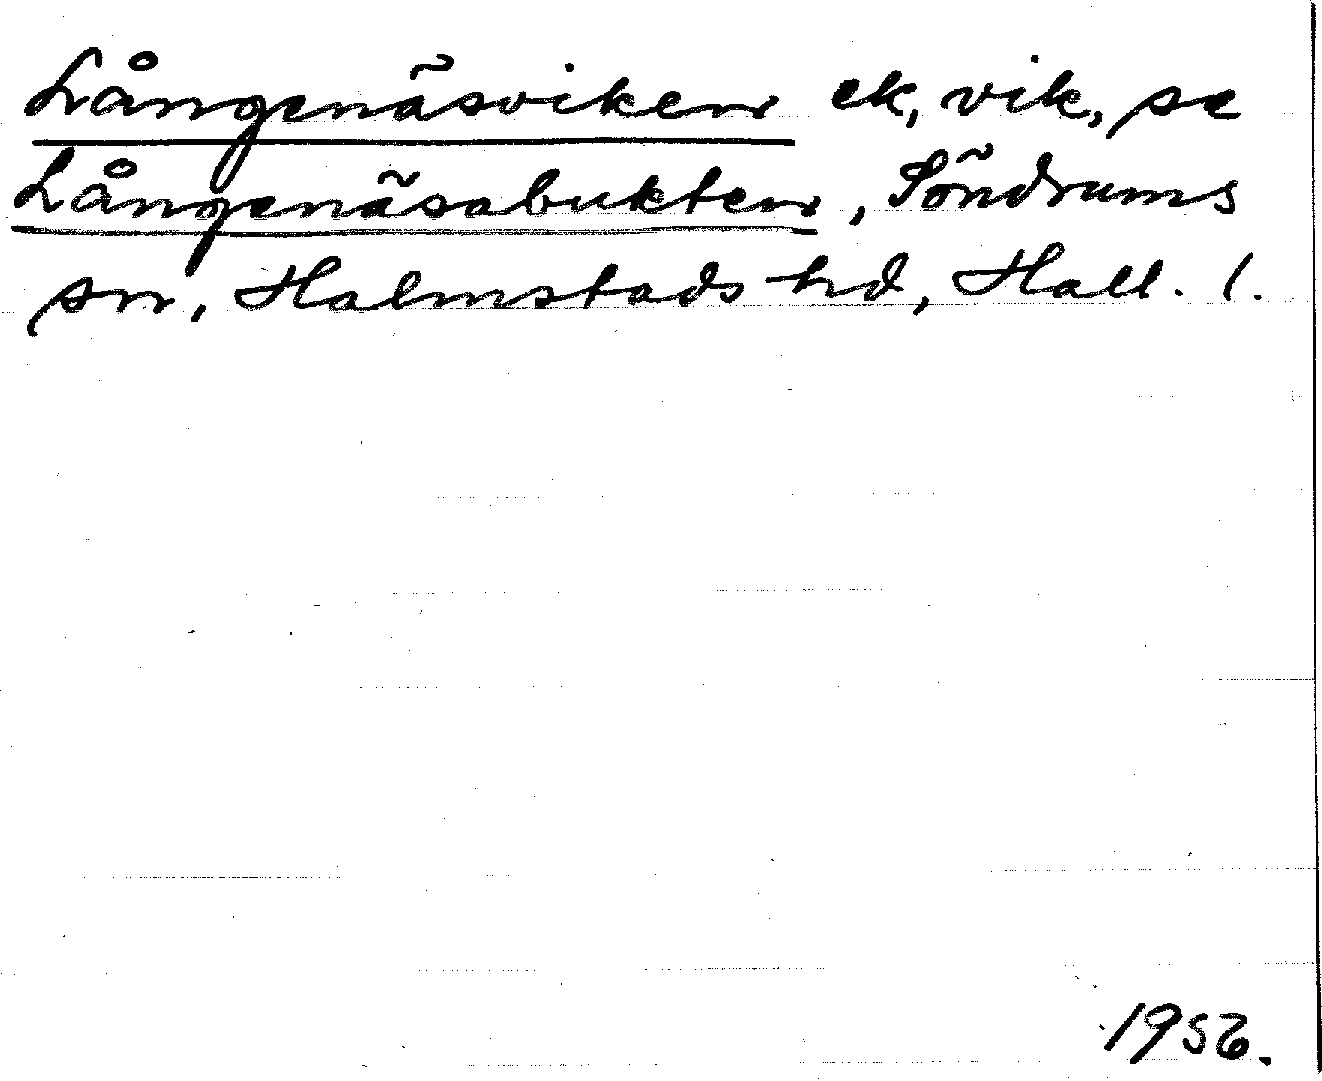 Långenäsviken ek, vik, se
Långenäsabukten, Söndrums
sn, Halmstads hd, Hall. l.
1956.